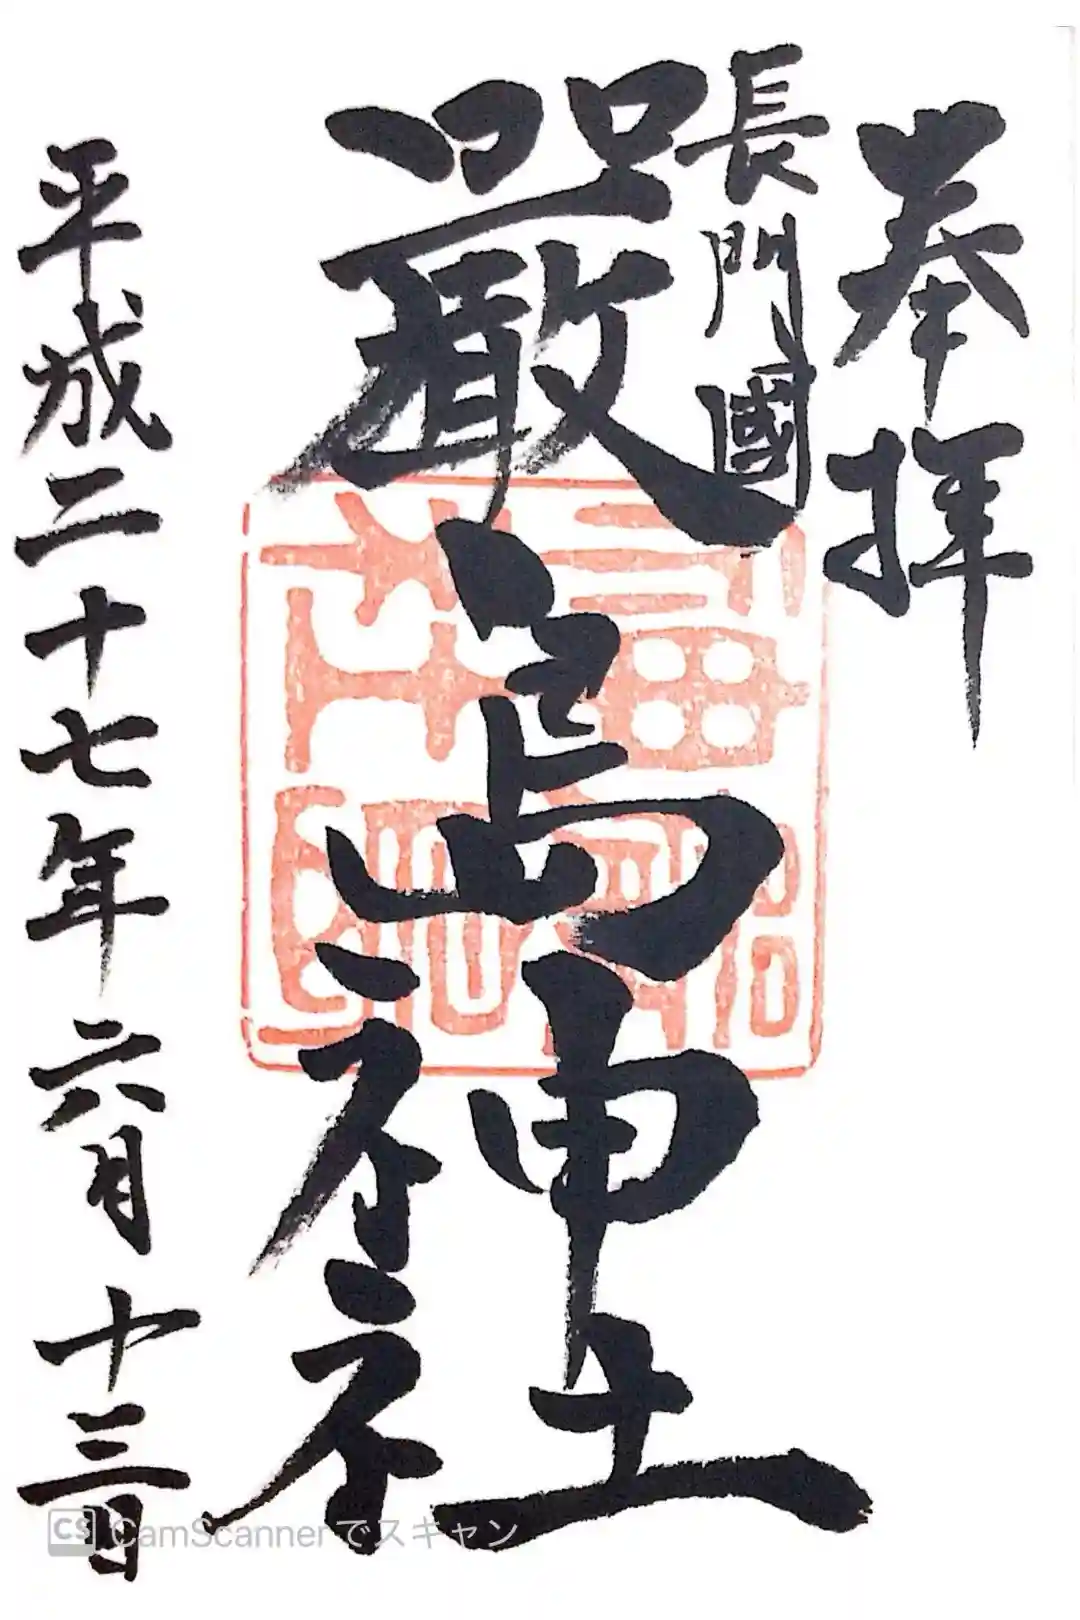 奉拝
長門國
嚴島神社
平成二十七年六月十三日
CS CamScannerでスキャン